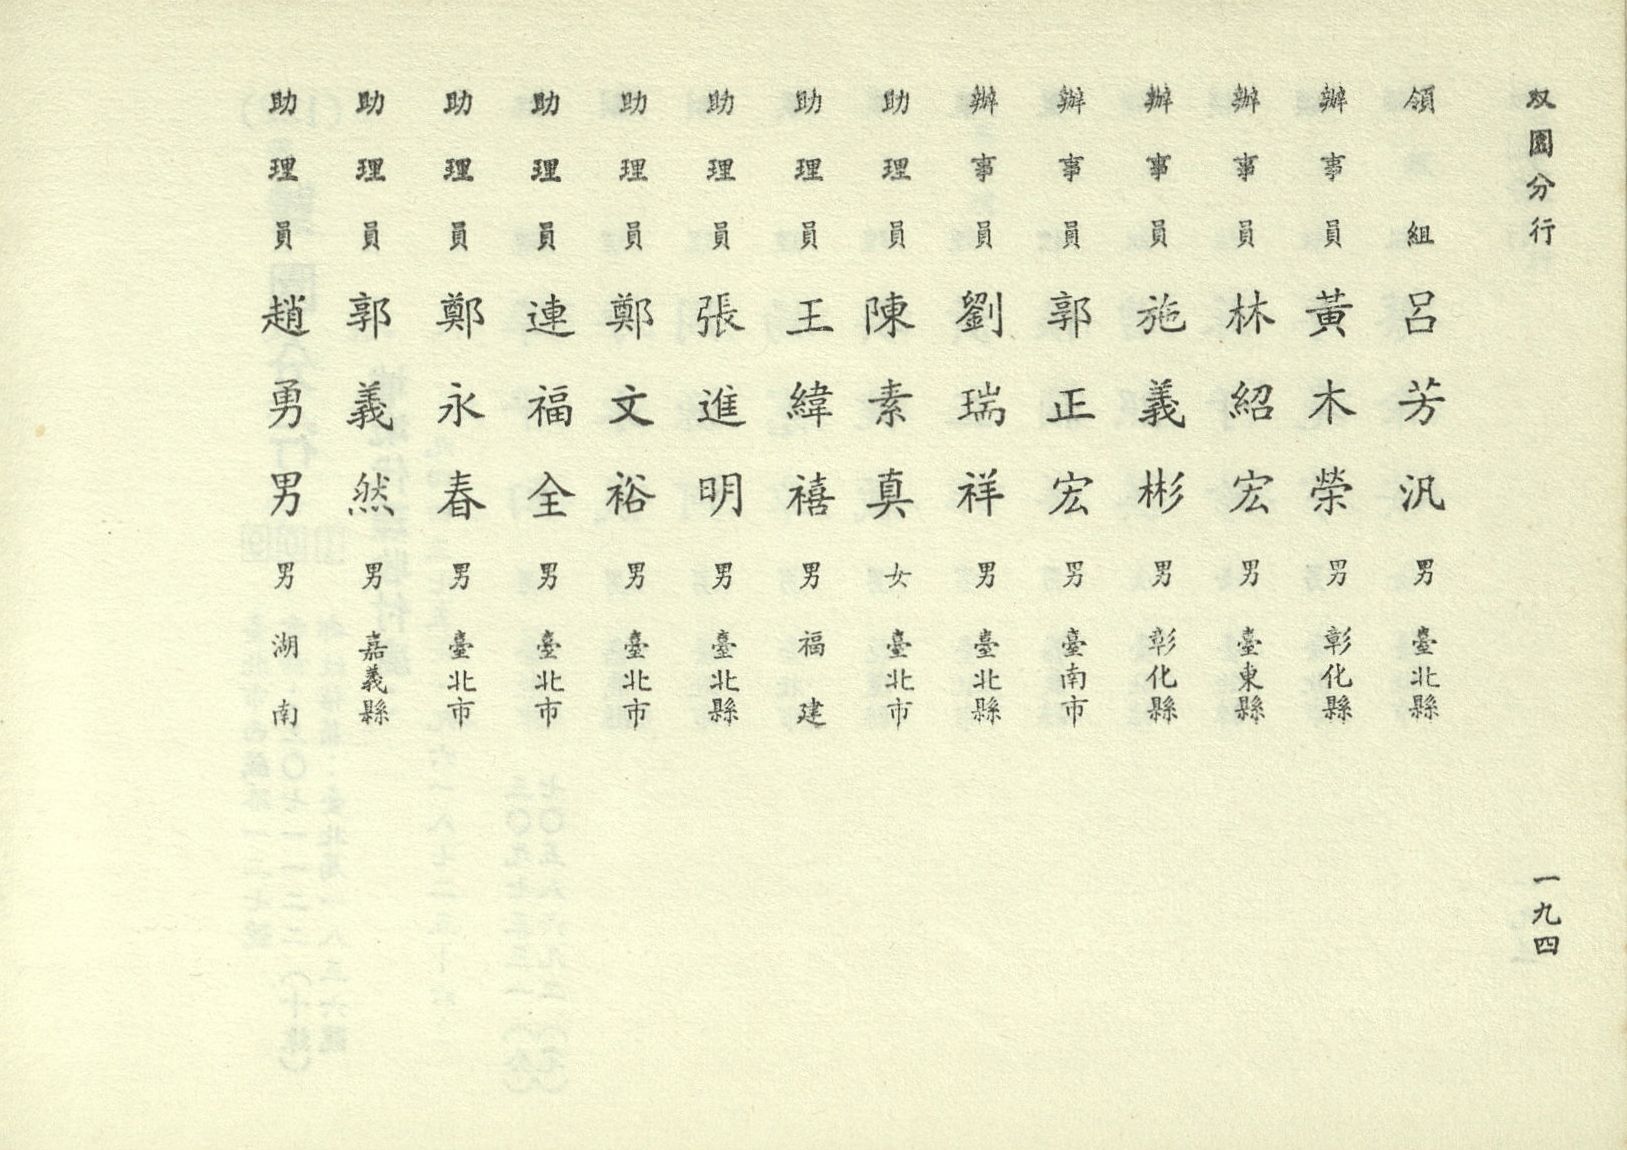 双園分行
一九四
領組 呂芳汎 男 臺北縣
辦事員 黃木榮 男 彰化縣
辦事員 林紹宏 男 臺東縣
辦事員 施義彬 男 彰化縣
辦事員 郭正宏 男 臺南市
辦事員 劉瑞祥 男 臺北縣
助理員 陳素真 女 臺北市
助理員 王緯禧 男 福建
助理員 張進明 男 臺北縣
助理員 鄭文裕 男 臺北市
助理員 連福全 男 臺北市
助理員 鄭永春 男 臺北市
助理員 郭義然 男 嘉義縣
助理員 趙勇男 男 湖南